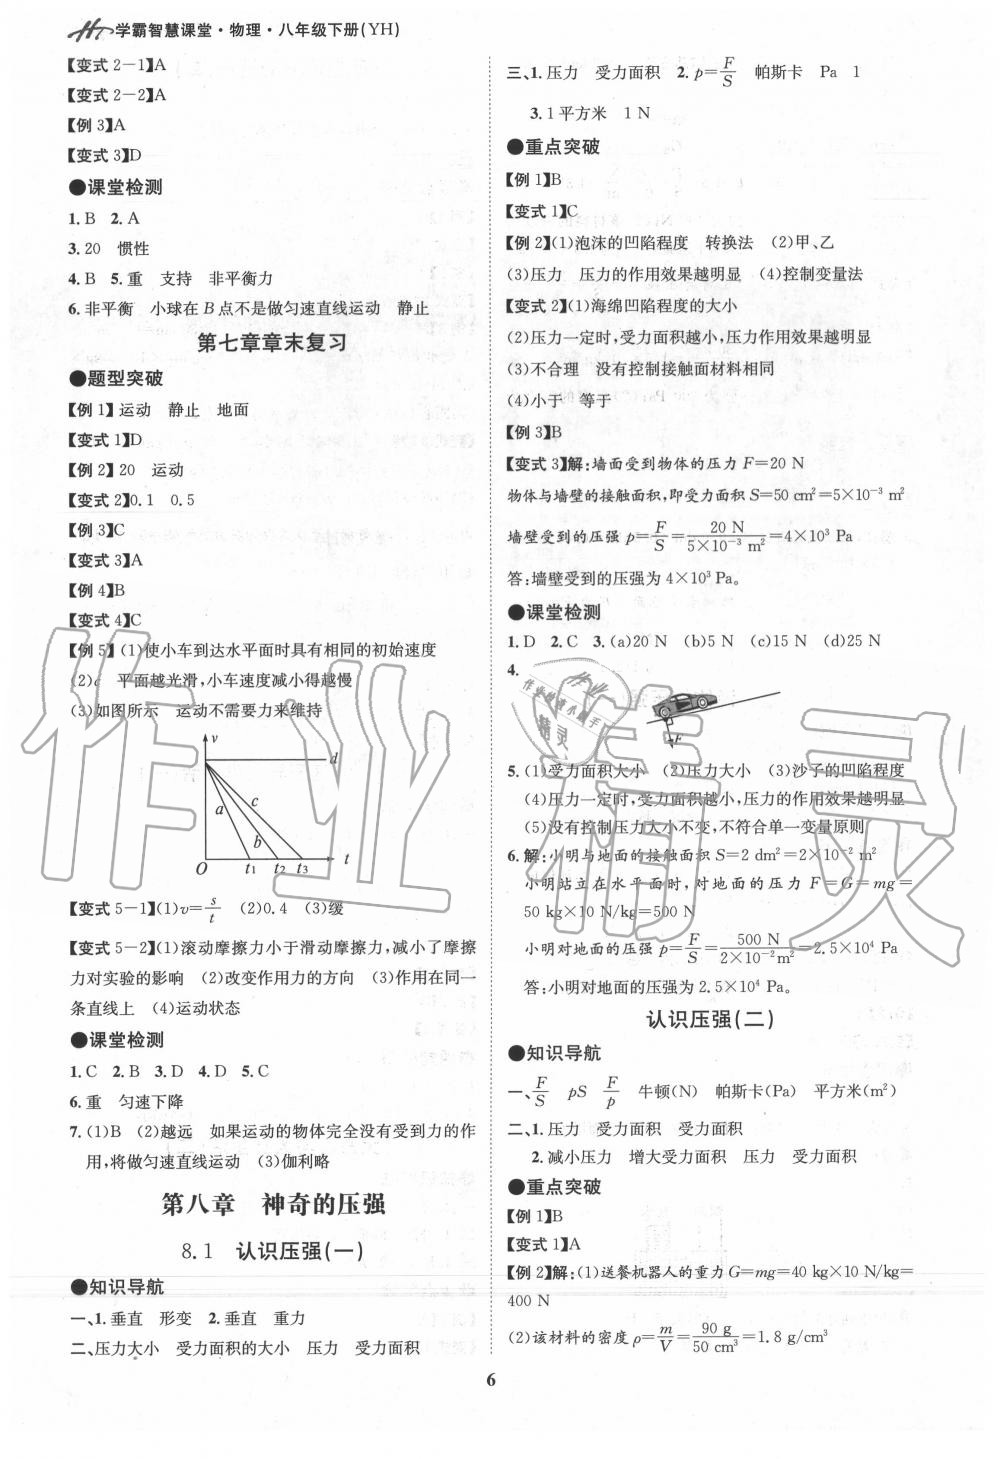 学霸智慧课堂·物理·八年级下册(YH)
【变式 2-1】A
【变式 2-2】A
【例 3】A
【变式 3】D
●课堂检测
1. B  2. A
3. 20  惯性
4. B  5. 重  支持  非平衡力
6. 非平衡  小球在 B 点不是做匀速直线运动  静止
第七章章末复习
●题型突破
【例 1】运动  静止  地面
【变式 1】D
【例 2】20  运动
【变式 2】0.1  0.5
【例 3】C
【变式 3】A
【例 4】B
【变式 4】C
【例 5】(1)使小车到达水平面时具有相同的初始速度
(2)c  平面越光滑,小车速度减小得越慢
(3)如图所示  运动不需要力来维持
v
d
a  b  c
O  t₁  t₂  t₃  t
【变式 5-1】(1)v=s/t  (2)0.4  (3)缓
【变式 5-2】(1)滚动摩擦力小于滑动摩擦力,减小了摩擦
力对实验的影响  (2)改变作用力的方向  (3)作用在同一
条直线上  (4)运动状态
●课堂检测
1. C  2. B  3. D  4. D  5. C
6. 重  匀速下降
7. (1)B  (2)越远  如果运动的物体完全没有受到力的作
用,将做匀速直线运动  (3)伽利略
第八章  神奇的压强
8.1  认识压强(一)
●知识导航
一、1. 垂直  形变  2. 垂直  重力
二、压力大小  受力面积的大小  压力  受力面积
三、1. 压力  受力面积  2. p=F/S  帕斯卡  Pa  1
3. 1 平方米  1 N
●重点突破
【例 1】B
【变式 1】C
【例 2】(1)泡沫的凹陷程度  转换法  (2)甲、乙
(3)压力  压力的作用效果越明显  (4)控制变量法
【变式 2】(1)海绵凹陷程度的大小
(2)压力一定时,受力面积越小,压力作用效果越明显
(3)不合理  没有控制接触面材料相同
(4)小于  等于
【例 3】B
【变式 3】解:墙面受到物体的压力 F=20 N
物体与墙壁的接触面积,即受力面积 S=50 cm²=5×10⁻³ m²
墙壁受到的压强 p=F/S=20 N/(5×10⁻³ m²)=4×10³ Pa
答:墙壁受到的压强为 4×10³ Pa。
●课堂检测
1. D  2. C  3. (a)20 N  (b)5 N  (c)15 N  (d)25 N
4.
F
5. (1)受力面积大小  (2)压力大小  (3)沙子的凹陷程度
(4)压力一定时,受力面积越小,压力的作用效果越明显
(5)没有控制压力大小不变,不符合单一变量原则
6. 解:小明与地面的接触面积 S=2 dm²=2×10⁻² m²
小明站立在水平面时,对地面的压力 F=G=mg=
50 kg×10 N/kg=500 N
小明对地面的压强 p=F/S=500 N/(2×10⁻² m²)=2.5×10⁴ Pa
答:小明对地面的压强为 2.5×10⁴ Pa。
认识压强(二)
●知识导航
一、F/S  pS  F/p  牛顿(N)  帕斯卡(Pa)  平方米(m²)
二、1. 压力  受力面积  受力面积
2. 减小压力  增大受力面积  压力  受力面积
●重点突破
【例 1】B
【变式 1】A
【例 2】解:(1)送餐机器人的重力 G=mg=40 kg×10 N/kg=
400 N
(2)该材料的密度 ρ=m/V=90 g/50 cm³=1.8 g/cm³
6
作业精灵